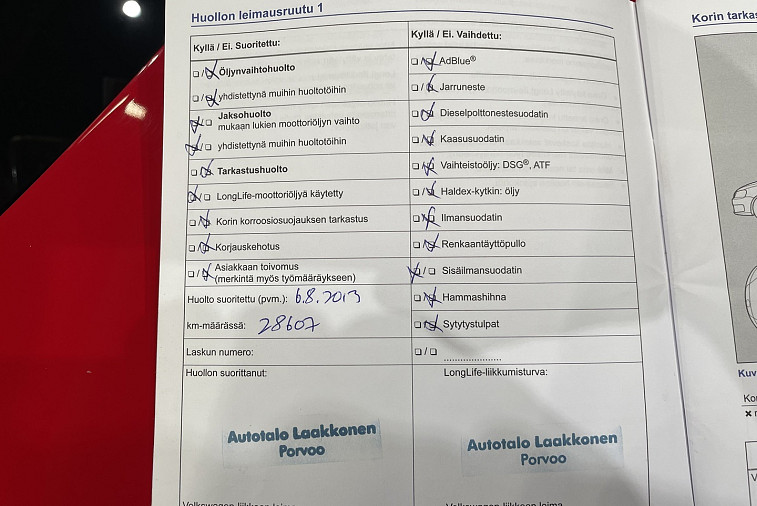 Huollon leimausruutu 1
Kyllä / Ei. Suoritettu:
Öljynvaihtohuolto
yhdistettynä muihin huoltotöihin
Jaksohuolto
mukaan lukien moottoriöljyn vaihto
yhdistettynä muihin huoltotöihin
Tarkastushuolto
LongLife-moottoriöljyä käytetty
Korin korroosiosuojauksen tarkastus
Korjauskehotus
Asiakkaan toivomus
(merkintä myös työmääräykseen)
Huolto suoritettu (pvm.): 6.8.2013
km-määrässä: 28607
Laskun numero:
Huollon suorittanut:
Autotalo Laakkonen
Porvoo
Kyllä / Ei. Vaihdettu:
AdBlue®
Jarruneste
Dieselpolttonestesuodatin
Kaasusuodatin
Vaihteistoöljy: DSG®, ATF
Haldex-kytkin: öljy
Ilmansuodatin
Renkaantäyttöpullo
Sisäilmansuodatin
Hammashihna
Sytytystulpat
LongLife-liikkumisturva:
Autotalo Laakkonen
Porvoo
Korin tarkas
Kuv